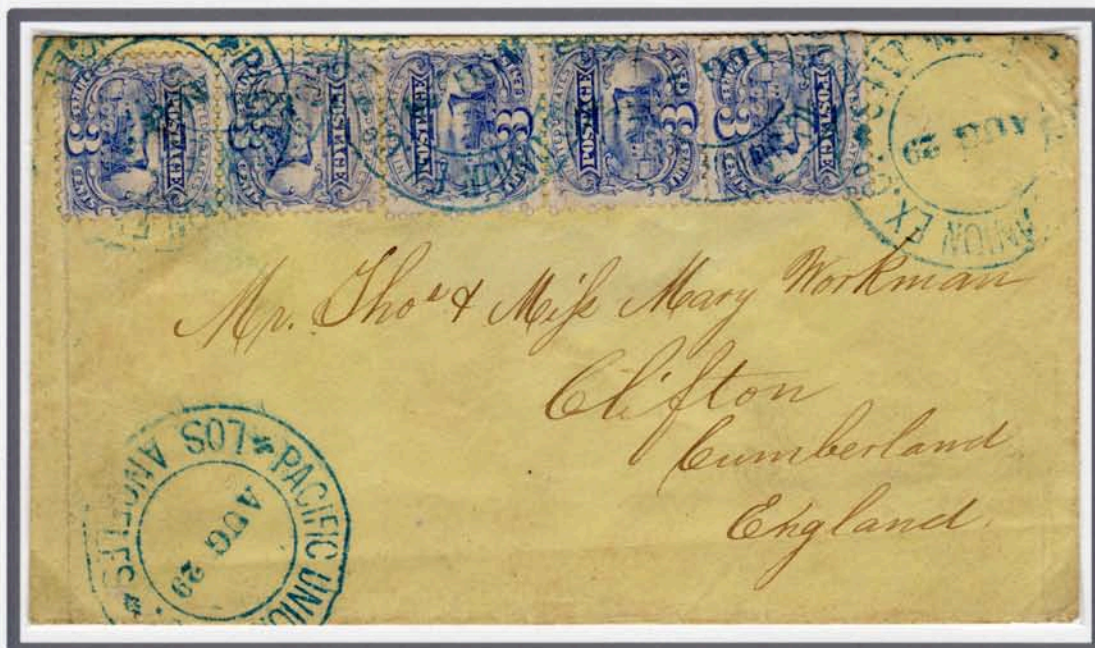 3 POSTAGE
POSTAGE
POSTAGE 3
POSTAGE 3
3 POSTAGE
AUG
AUG 29
UNION EX. Co.
Mr. Thos & Miss Mary Workman
Clifton
Cumberland
England.
PACIFIC UNION
LOS ANGELES
AUG 29